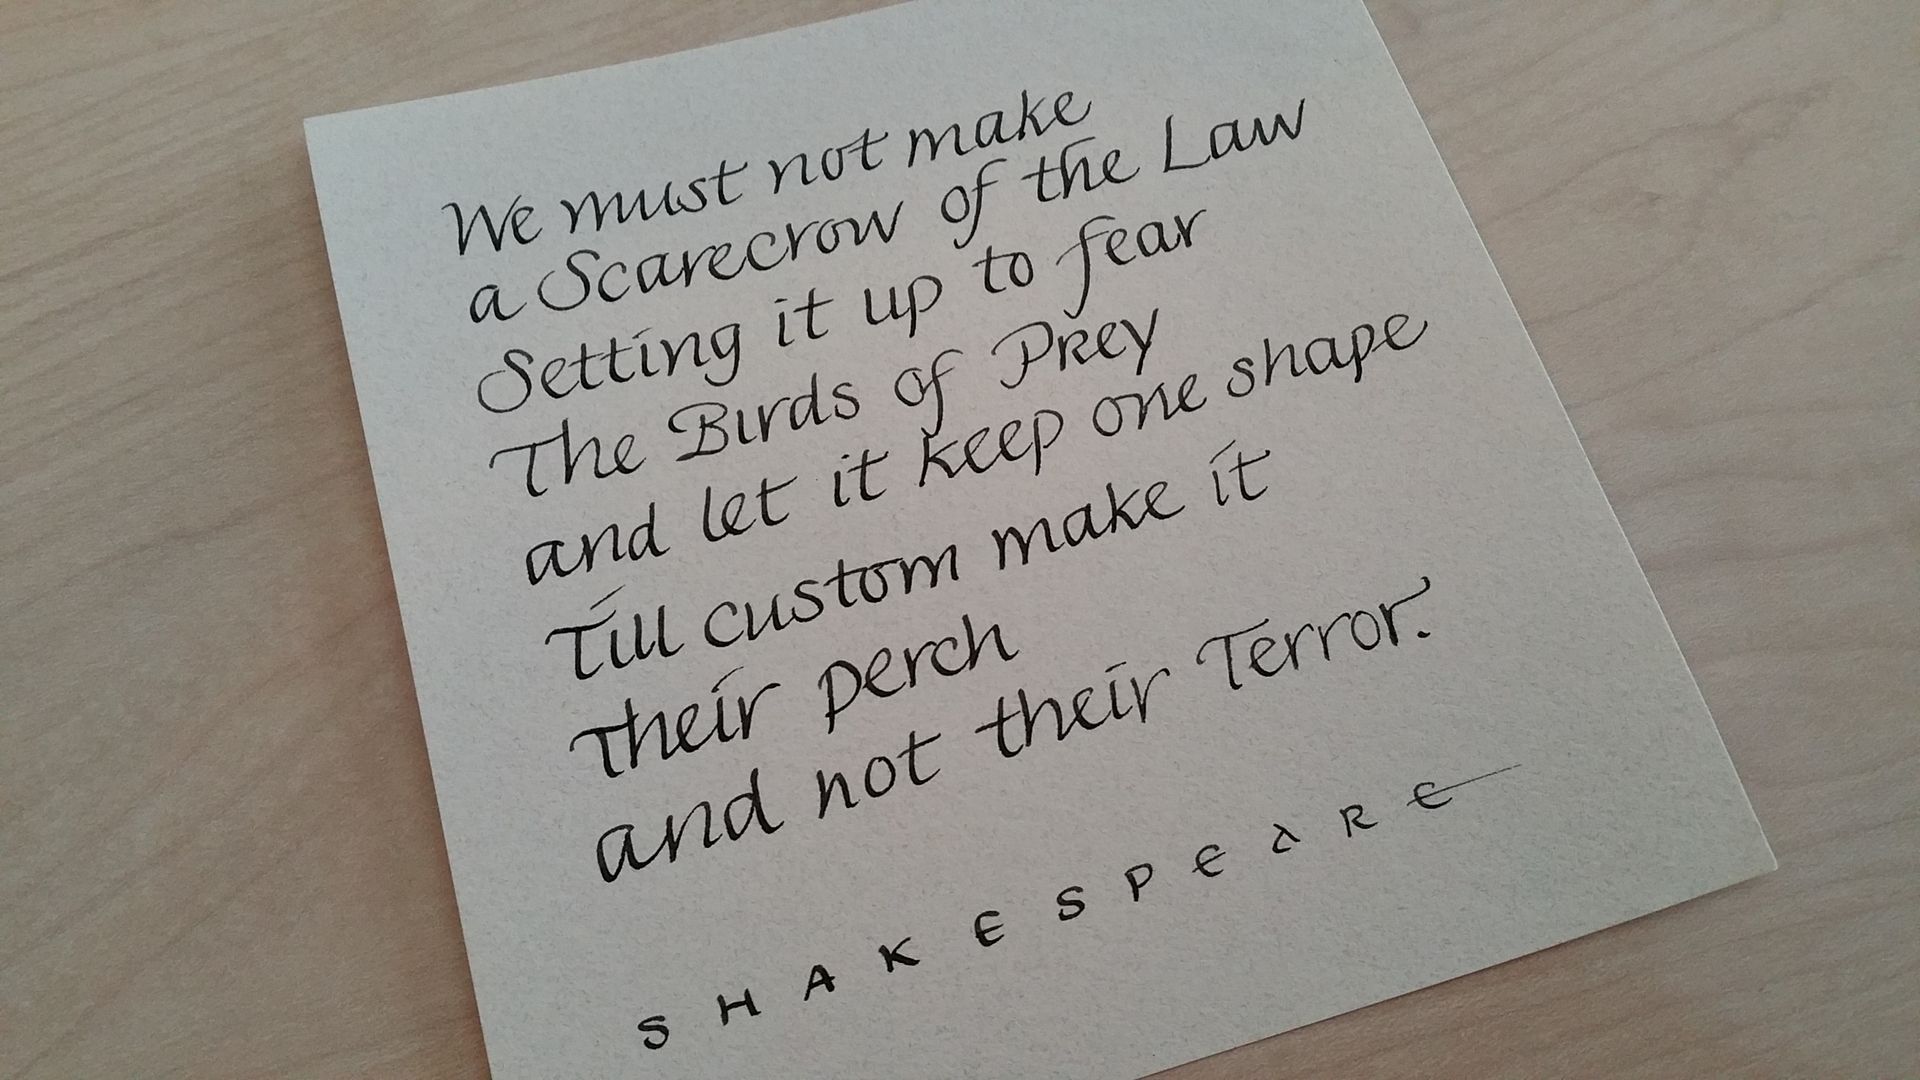 We must not make
a Scarecrow of the Law
Setting it up to fear
The Birds of Prey
and let it keep one shape
Till custom make it
Their perch
and not their Terror.
SHAKESPEARE